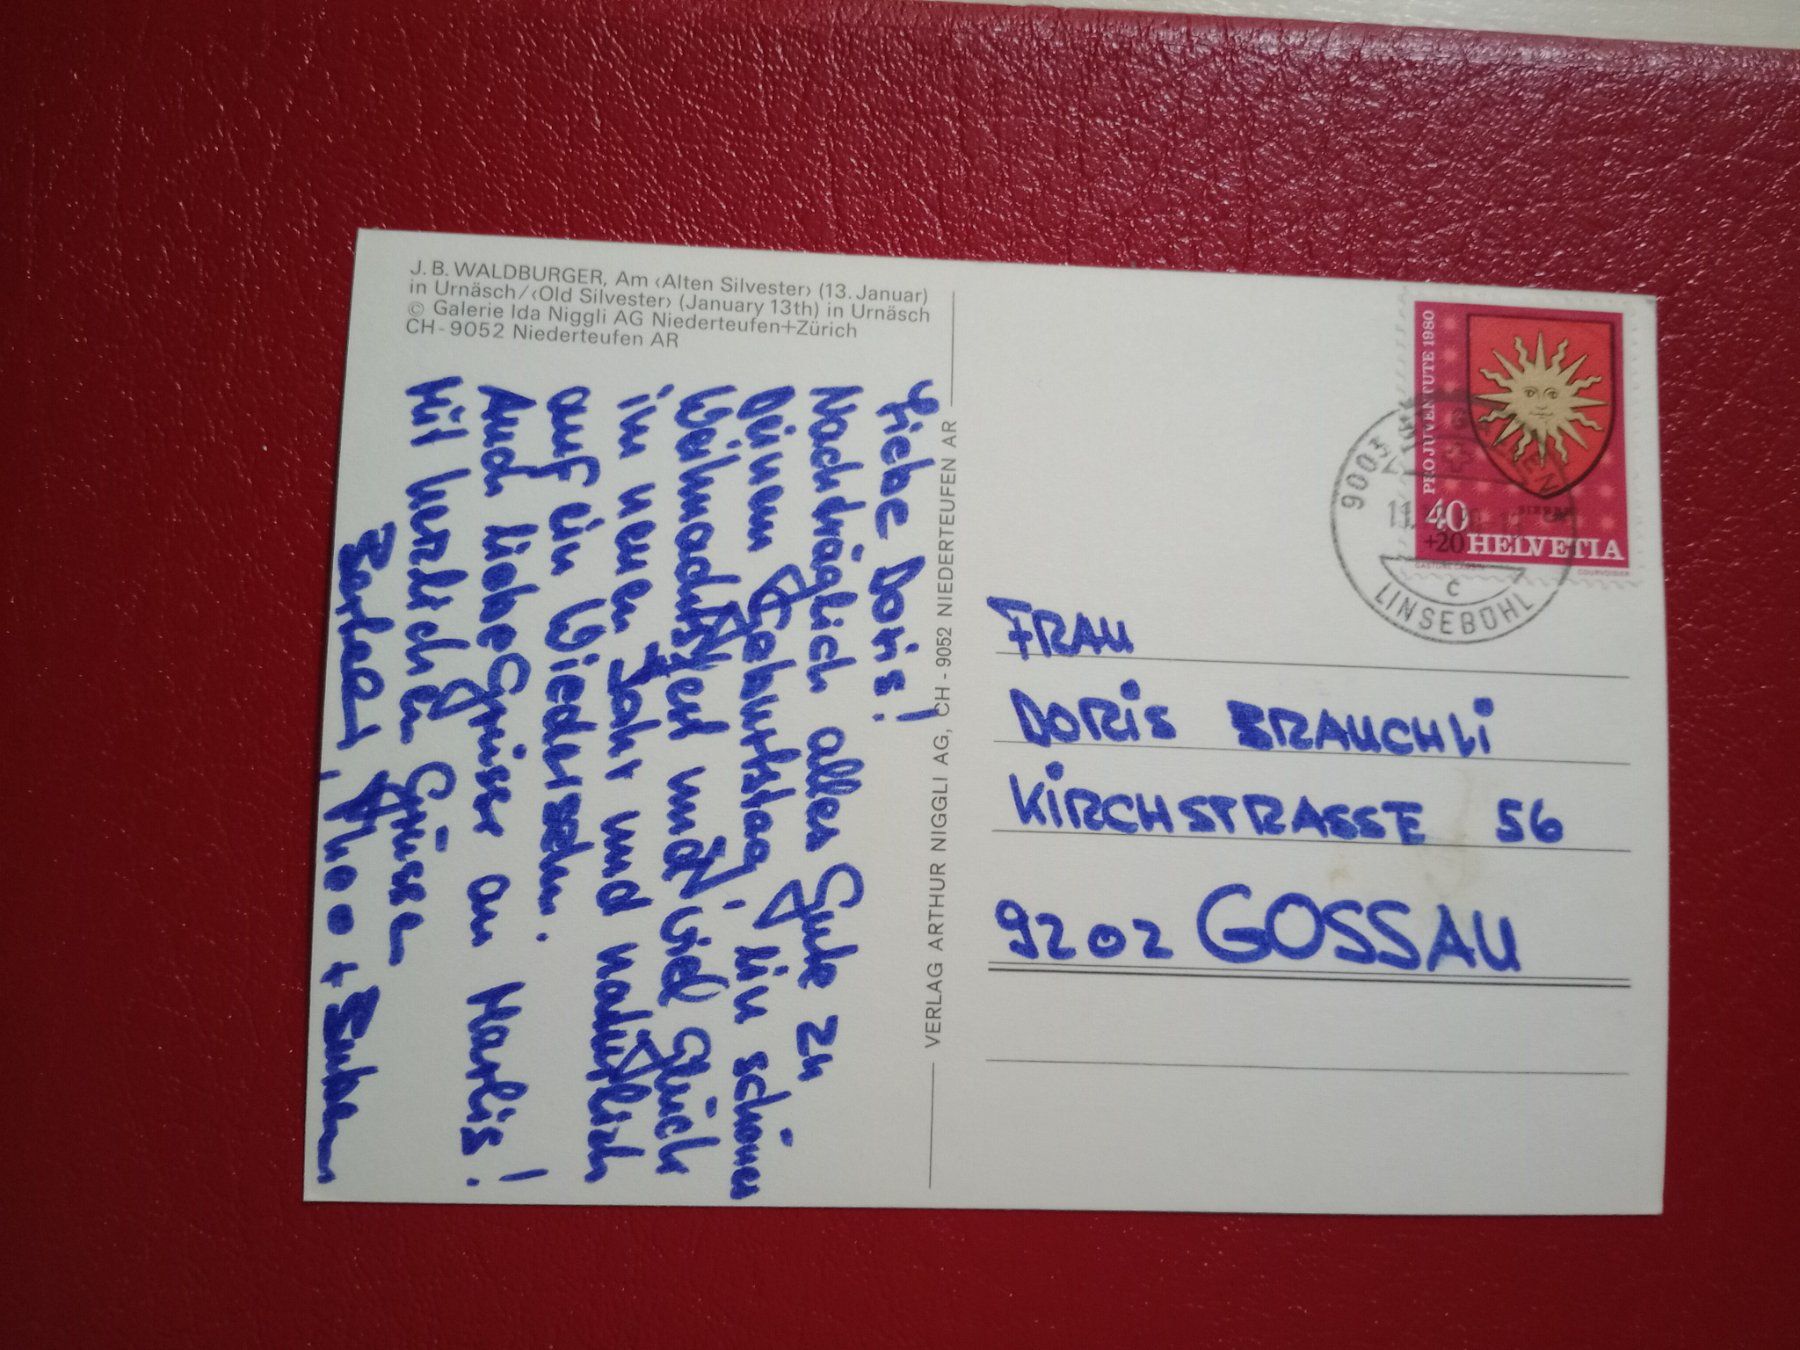 J. B. WALDBURGER, Am ‹Alten Silvester› (13. Januar)
in Urnäsch/‹Old Silvester› (January 13th) in Urnäsch
© Galerie Ida Niggli AG Niederteufen+Zürich
CH-9052 Niederteufen AR
Liebe Doris!
Nachträglich alles Gute zu
Deinem Geburtstag, ein schönes
Weihnachtsfest und viel Glück
im neuen Jahr und natürlich
auf ein Wiedersehn.
Auch liebe Grüsse an Marlis!
Mit herzlichen Grüssen
Theo +
VERLAG ARTHUR NIGGLI AG, CH - 9052 NIEDERTEUFEN AR
PRO JUVENTUTE 1980
40
+20 HELVETIA
COURVOISIER
9003
11.
c
LINSEBÜHL
FRAU
DORIS BRAUCHLI
KIRCHSTRASSE 56
9202 GOSSAU